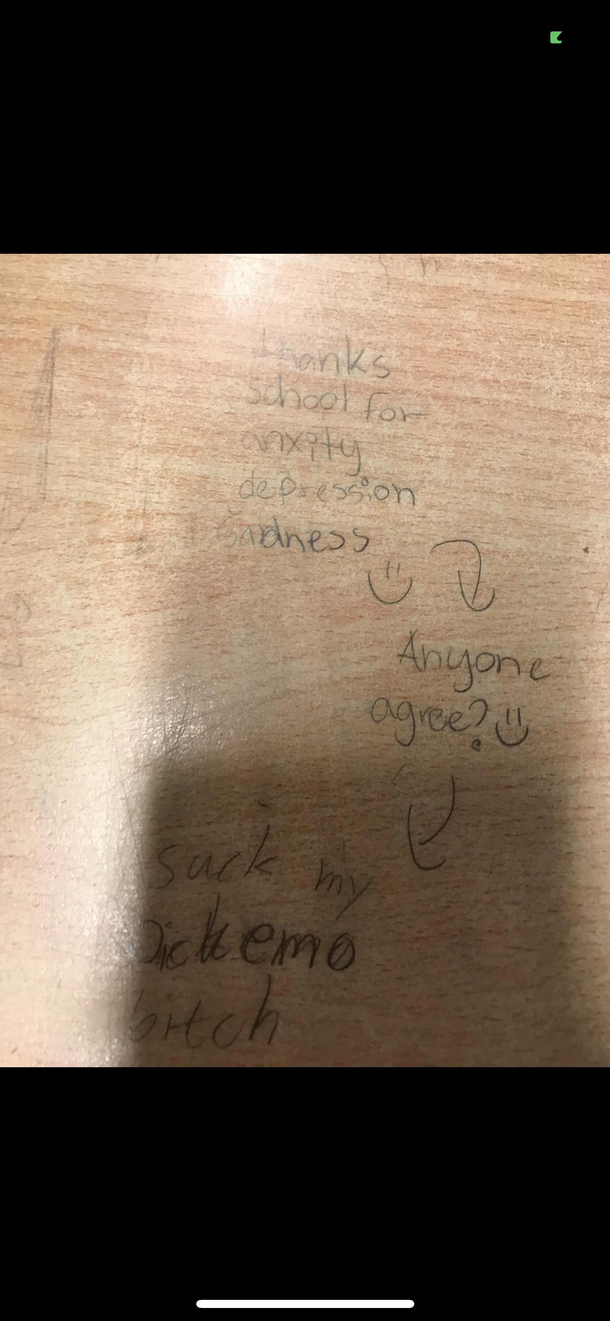 thanks
school for
anxity
depression
sadness
Anyone
agree?
suck my
Dick emo
bitch